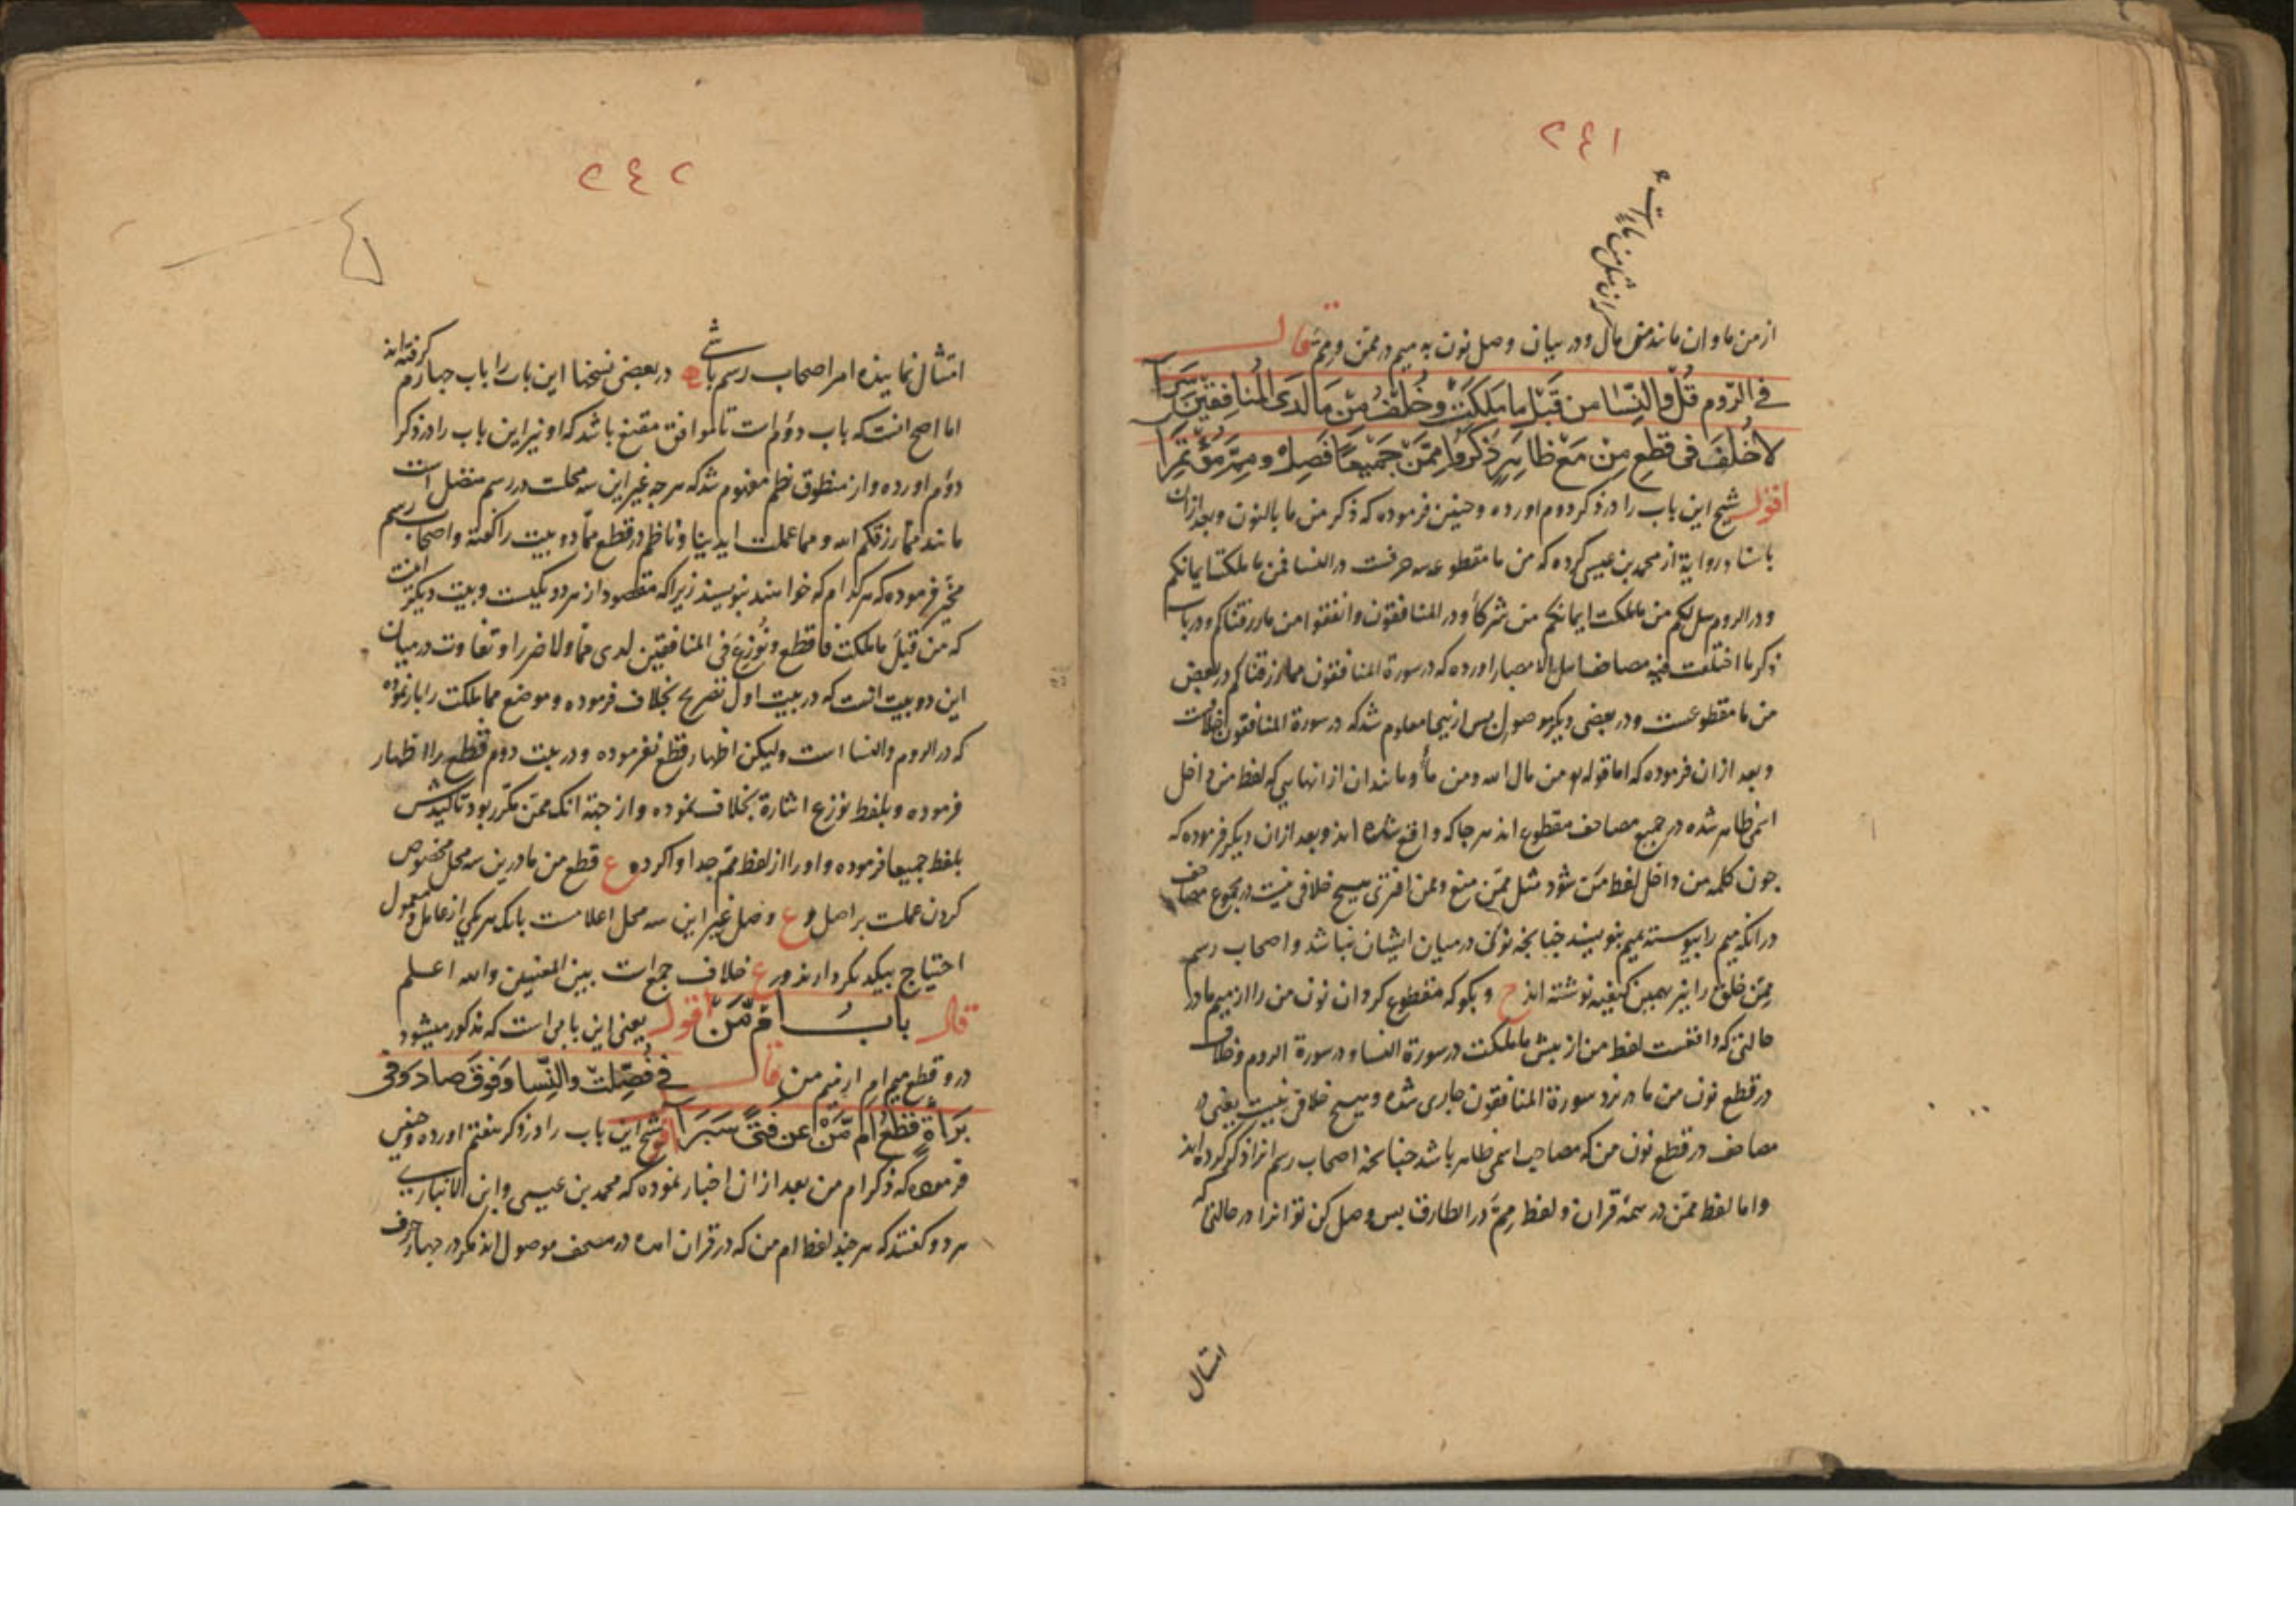 ٢٤١
از من ما و ان مانند من مال و در بیان وصل نون به میم در ممن و مم قال
في الروم قل والنسا من قبل ما ملكت وخلف من ما لدى المنافقين سرا
لا خلف في قطع من مع ظاهر ذكروا ممن جميعا فصل ومم مؤتمرا
اقول شیخ این باب را در ذکر دوم اورده و چنین فرموده که ذکر من ما بالنون و بعد ازان
باسناد روایة از محمد بن عیسی کرده که من ما مقطوعه سه حرفست در النسا فمن ما ملکت ایمانکم
و در الروم هل لکم من ما ملکت ایمانکم من شرکاء و در المنافقون و انفقوا من ما رزقناکم و در باب
ذکر ما اختلفت فیه مصاحف اهل الامصار اورده که در سورة المنافقون مما رزقناکم در بعض
من ما مقطوعست و در بعضی دیگر موصول پس از اینجا معلوم شد که در سورة المنافقون خلافست
و بعد ازان فرموده که اما قوله من مال الله و من ماء و مانند ان از انهایی که لفظ من داخل
اسمی ظاهر شده در جمیع مصاحف مقطوع اند هر جا که واقع شده اند و بعد ازان دیگر فرموده که
چون کلمه من داخل لفظ من شود مثل ممن منع و ممن افتری هیچ خلافی نیست در مجموع مصاحف
در انکه میم را پیوسته بمیم بنویسند چنانچه نونی در میان ایشان نباشد و اصحاب رسم
مم خلق را نیز بهمین کیفیه نوشته اند ح و بگو که مقطوع کردان نون من را از میم ما در
حالتی که واقعست لفظ من از پیش ما ملکت در سورة النسا و در سورة الروم و خلاف
در قطع نون من ما در نزد سورة المنافقون جاری شده و هیچ خلافی نیست یعنی در
مصاحف در قطع نون من که مصاحب اسمی ظاهر باشد چنانچه اصحاب رسم انرا ذکر کرده اند
و اما لفظ ممن در همه قران و لفظ مم در الطارق پس وصل کن تو انرا در حالتی که
امتثال
٢٤٢
امتثال نماینده امر اصحاب رسم باشی در بعضی نسخها این باب را باب چهارم گرفته اند
اما اصح انست که باب دوم است تا موافق مقنع باشد که او نیز این باب را در ذکر
دوم اورده و از منطوق نظم مفهوم شد که هر چه غیر این سه محلست در رسم متصل است
مانند مما رزقکم الله و مما عملت ایدینا و ناظم در قطع مما دو بیت را گفته و اصحاب رسم
مخیر فرموده که هر کدام که خواهند بنویسند زیرا که مقصود از هر دو یکیست و بیت دیگر اینست
که من قبل ما ملکت فاقطع و نوزع فی المنافقین لدی مما ولا ضررا و تفاوت در میان
این دو بیت انست که در بیت اول تصریح بخلاف فرموده و موضع مما ملکت را باز نموده
که در الروم و النسا است و لیکن اظهار قطع نفرموده و در بیت دوم قطع را اظهار
فرموده و بلفظ نوزع اشارة بخلاف نموده و از جهة انکه ممن مکرر بود تاکیدش
بلفظ جمیعا فرموده و او را از لفظ مم جدا وا کرده ع قطع من ما درین سه محل مخصوص
کردن عملت بر اصل و ع وصل غیر این سه محل اعلامست بانکه هر یکی از عامل و معمول
احتیاج بیکدیگر دارند و در ع خلاف جمع است بین المعنیین والله اعلم
قال باب ام من اقول یعنی این بابی است که مذکور میشود
درو قطع میم ام از میم من قال في فصلت والنسا وفوق صاد وفي
براءة قطع ام من عن فتى سبرا اقول شیخ این باب را در ذکر هفتم اورده و چنین
فرموده که ذکر ام من بعد ازان اخبار نموده که محمد بن عیسی و ابن الانباری
هر دو گفتند که هر چند لفظ ام من که در قران امده در مصحف موصول اند مگر در چهار حرف